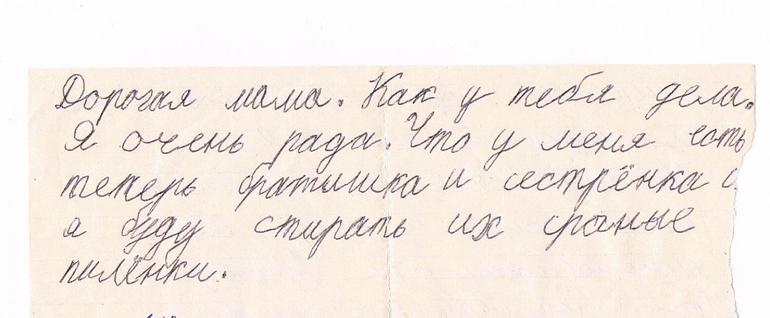 Дорогая мама. Как у тебя дела.
Я очень рада. Что у меня есть
теперь братишка и сестрёнка и
я буду стирать их сраные
пилёнки.